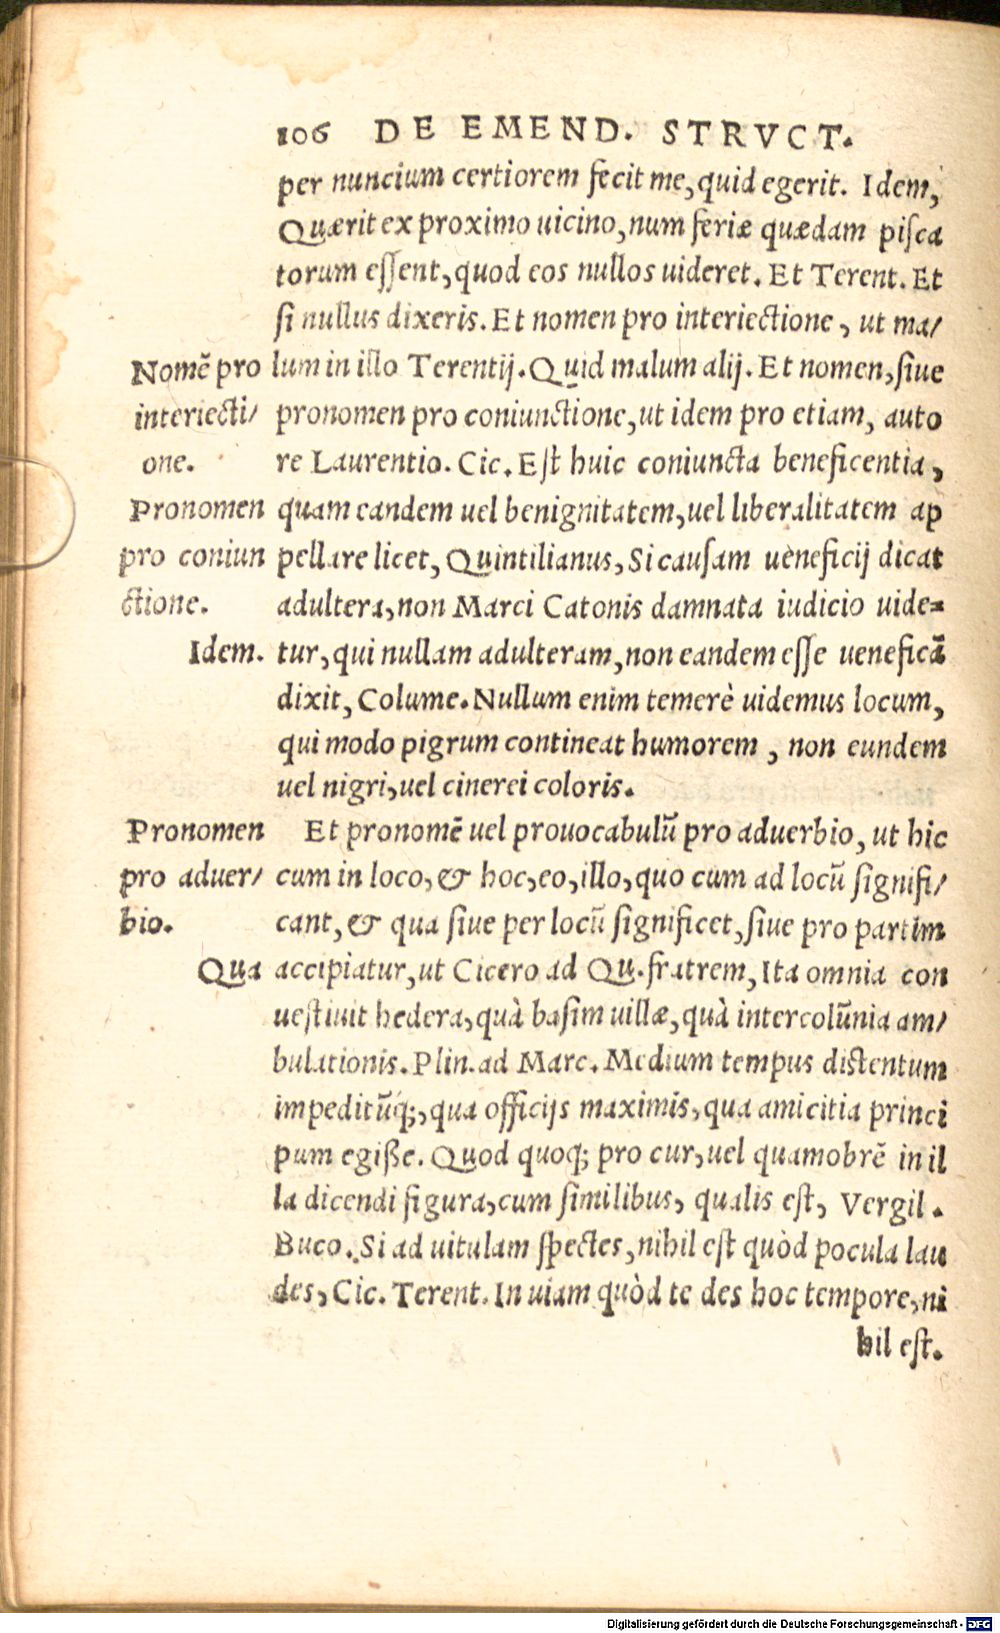 106 DE EMEND. STRVCT.
per nuncium certiorem fecit me, quid egerit. Idem,
Quærit ex proximo uicino, num feriæ quædam pisca
torum essent, quod eos nullos uideret. Et Terent. Et
si nullus dixeris. Et nomen pro interiectione, ut ma/
Nomẽ pro lum in illo Terentij. Quid malum alij. Et nomen, siue
interiecti/ pronomen pro coniunctione, ut idem pro etiam, auto
one. re Laurentio. Cic. Est huic coniuncta beneficentia,
Pronomen quam eandem uel benignitatem, uel liberalitatem ap
pro coniun pellare licet, Quintilianus, Si causam ueneficij dicat
ctione. adultera, non Marci Catonis damnata iudicio uide=
Idem. tur, qui nullam adulteram, non eandem esse ueneficã
dixit, Colume. Nullum enim temerè uidemus locum,
qui modo pigrum contineat humorem, non eundem
uel nigri, uel cinerei coloris.
Pronomen Et pronomẽ uel prouocabulũ pro aduerbio, ut hic
pro aduer/ cum in loco, & hoc, eo, illo, quo cum ad locũ signifi/
bio. cant, & qua siue per locũ significet, siue pro partim
Qua accipiatur, ut Cicero ad Qu. fratrem, Ita omnia con
uestiuit hedera, quà basim uillæ, quà intercolũnia am/
bulationis. Plin. ad Marc. Medium tempus distentum
impeditũq;, qua officijs maximis, qua amicitia princi
pum egiße. Quod quoq; pro cur, uel quamobrẽ in il
la dicendi figura, cum similibus, qualis est, Vergil.
Buco. Si ad uitulam spectes, nihil est quòd pocula lau
des, Cic. Terent. In uiam quòd te des hoc tempore, ni
hil est.
Digitalisierung gefördert durch die Deutsche Forschungsgemeinschaft - DFG